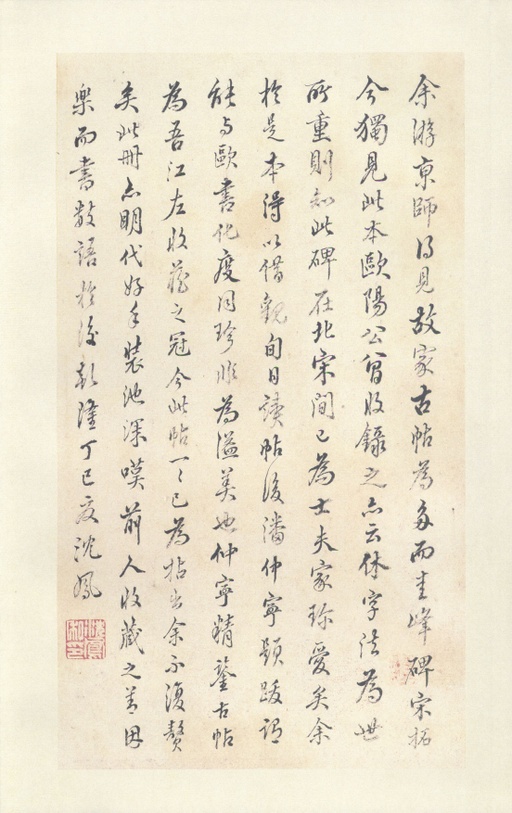 余游京師得見故家古帖為多而圭峰碑宋拓
今獨見此本歐陽公曾收錄之亦云休字法為世
所重則知此碑在北宋間已為士夫家珍愛矣余
於是本得以借觀旬日讀帖後潘仲寧題跋謂
能與歐書化度同珍非為溢美也仲寧精鑒古帖
為吾江左收藏之冠今此帖一一已為拈出余不復贅
矣此冊亦明代好手裝池深嘆前人收藏之善因
樂而書數語於後乾隆丁巳夏沈鳳
沈鳳私印